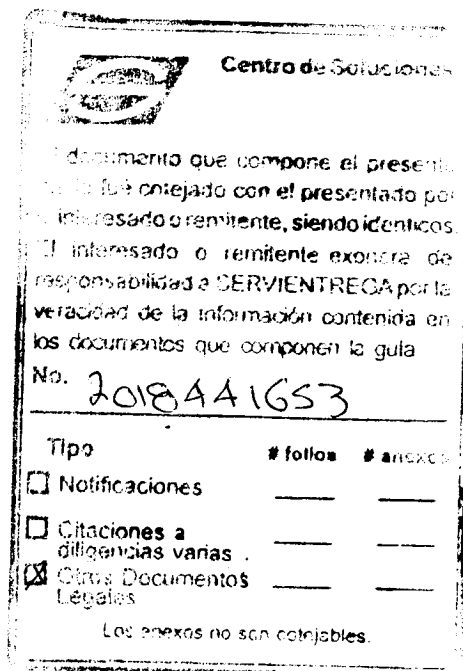 Centro de Soluciones
documento que compone el present
fué cotejado con el presentado por
interesado o remitente, siendo idénticos.
El interesado o remitente exonera de
responsabilidad a SERVIENTREGA por la
veracidad de la información contenida en
los documentos que componen la guía
No. 2018441653
Tipo # folios # anexos
Notificaciones
Citaciones a
diligencias varias .
Otros Documentos
Legales
Los anexos no son cotejables.